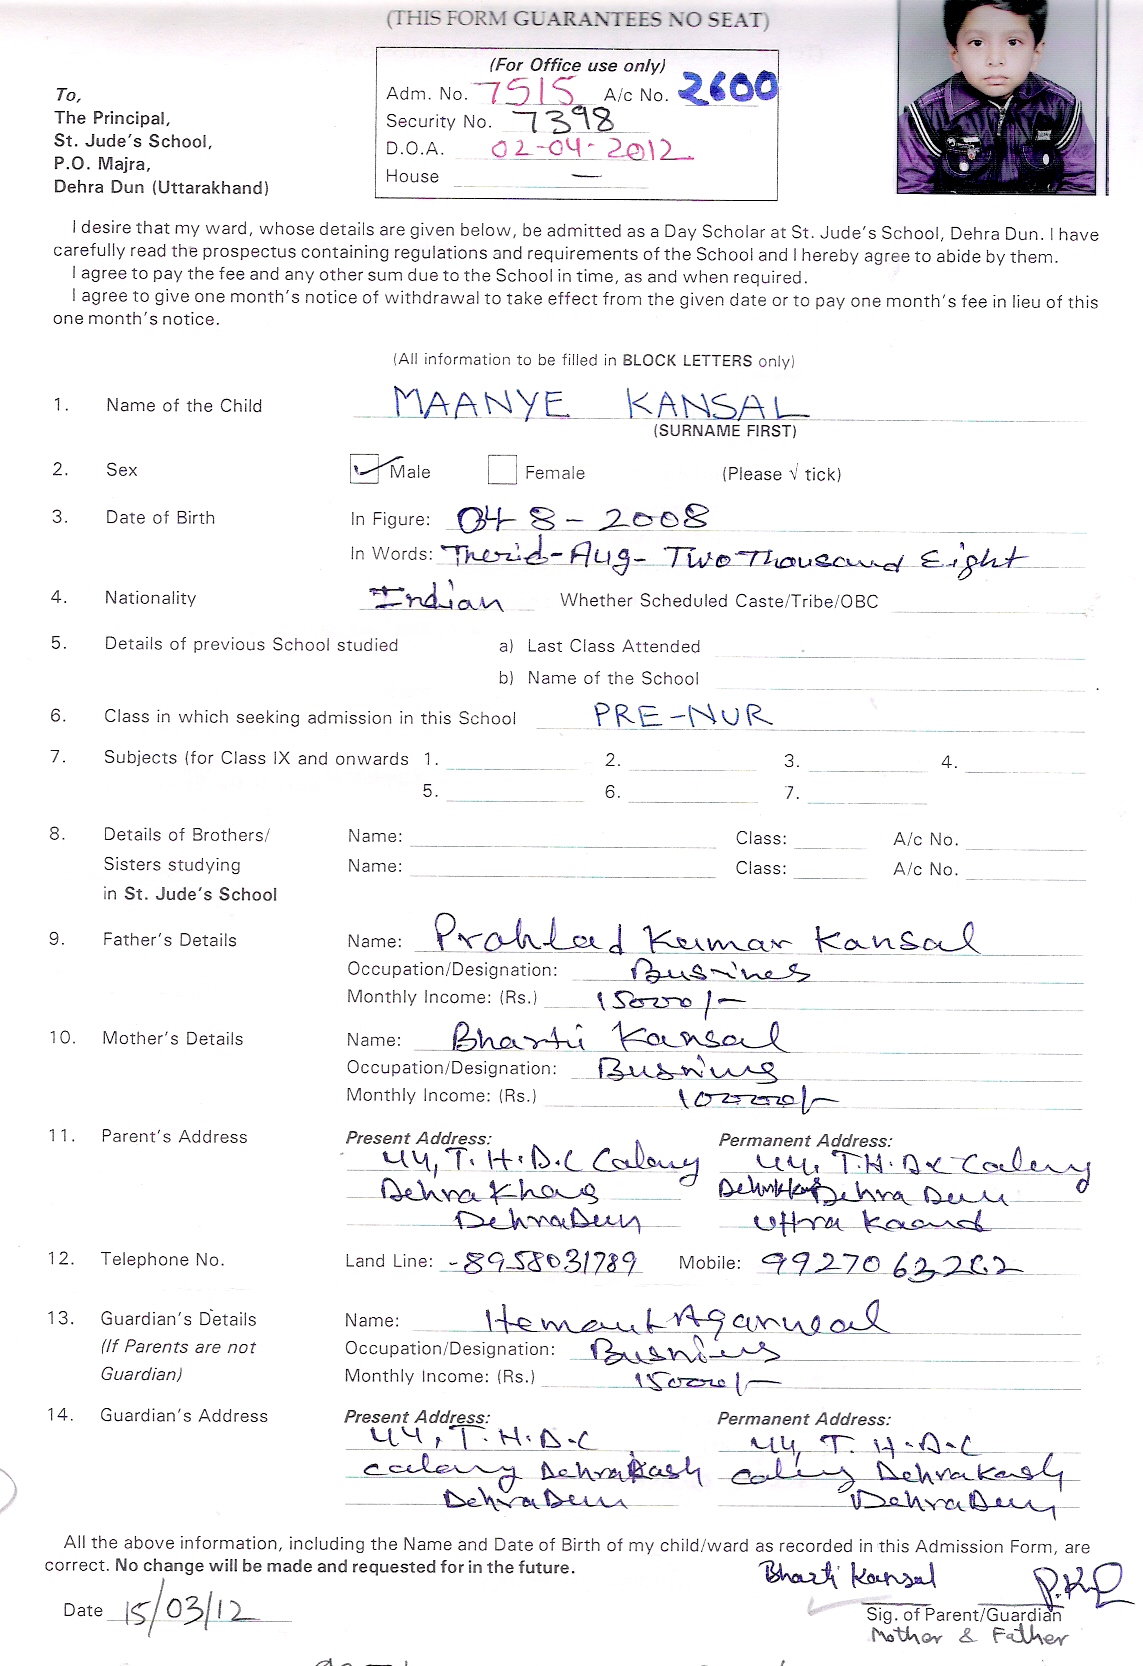 (THIS FORM GUARANTEES NO SEAT)
(For Office use only)
Adm. No. 7515 A/c No. 2600
Security No. 7398
D.O.A. 02-04-2012
House —
To,
The Principal,
St. Jude's School,
P.O. Majra,
Dehra Dun (Uttarakhand)
I desire that my ward, whose details are given below, be admitted as a Day Scholar at St. Jude's School, Dehra Dun. I have
carefully read the prospectus containing regulations and requirements of the School and I hereby agree to abide by them.
I agree to pay the fee and any other sum due to the School in time, as and when required.
I agree to give one month's notice of withdrawal to take effect from the given date or to pay one month's fee in lieu of this
one month's notice.
(All information to be filled in BLOCK LETTERS only)
1. Name of the Child MAANYE KANSAL
(SURNAME FIRST)
2. Sex Male Female (Please √ tick)
3. Date of Birth In Figure: 04 8 - 2008
In Words: Therid-Aug- Two Thousand Eight
4. Nationality Indian Whether Scheduled Caste/Tribe/OBC
5. Details of previous School studied a) Last Class Attended
b) Name of the School
6. Class in which seeking admission in this School PRE-NUR
7. Subjects (for Class IX and onwards 1. 2. 3. 4.
5. 6. 7.
8. Details of Brothers/ Name: Class: A/c No.
Sisters studying Name: Class: A/c No.
in St. Jude's School
9. Father's Details Name: Prahlad Kumar Kansal
Occupation/Designation: Busines
Monthly Income: (Rs.) 15000/-
10. Mother's Details Name: Bharti Kansal
Occupation/Designation:
Monthly Income: (Rs.)
11. Parent's Address Present Address: Permanent Address:
44, T.H.D.C Calony 44, T.H.D.C Calony
Dehra Khas Dehra Dun
DehraDun Uttra Kaand
12. Telephone No. Land Line: -8958031789 Mobile: 9927063262
13. Guardian's Details Name: Hemant Agarwal
(If Parents are not Occupation/Designation:
Guardian) Monthly Income: (Rs.) 15000/-
14. Guardian's Address Present Address: Permanent Address:
44, T.H.D.C 44, T.H.D.C
Calony DehraKash Calony DehraKash
DehraDun DehraDun
All the above information, including the Name and Date of Birth of my child/ward as recorded in this Admission Form, are
correct. No change will be made and requested for in the future.
Bharti Kansal
Date 15/03/12
Sig. of Parent/Guardian
Mother & Father